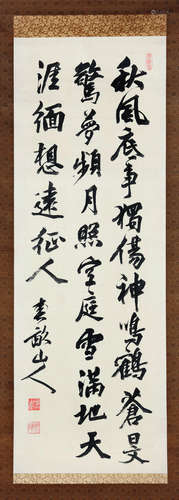 秋風底事獨傷神鳴鶴蒼旻
驚夢頻月照空庭雪滿地天
涯緬想遠征人 春畝山人